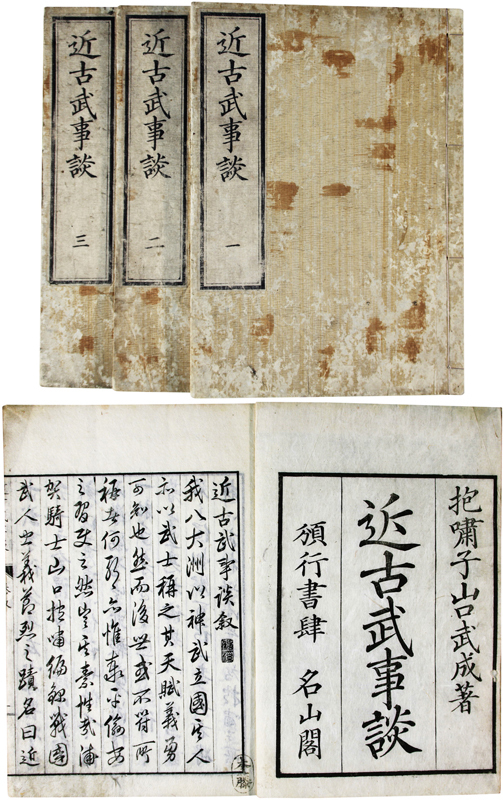 近古武事談 一
近古武事談 二
近古武事談 三
抱嘯子山口武成著
近古武事談
頒行書肆 名山閣
近古武事談叙
我八大洲以神武立國其人
亦以武士稱之其天賦義勇
可知也然而後世或不符所
稱者何歟亦惟承平偷安
之習使之然豈其素性哉浦
賀騎士山口抱嘯編録戰國
武人忠義節烈之蹟名曰近